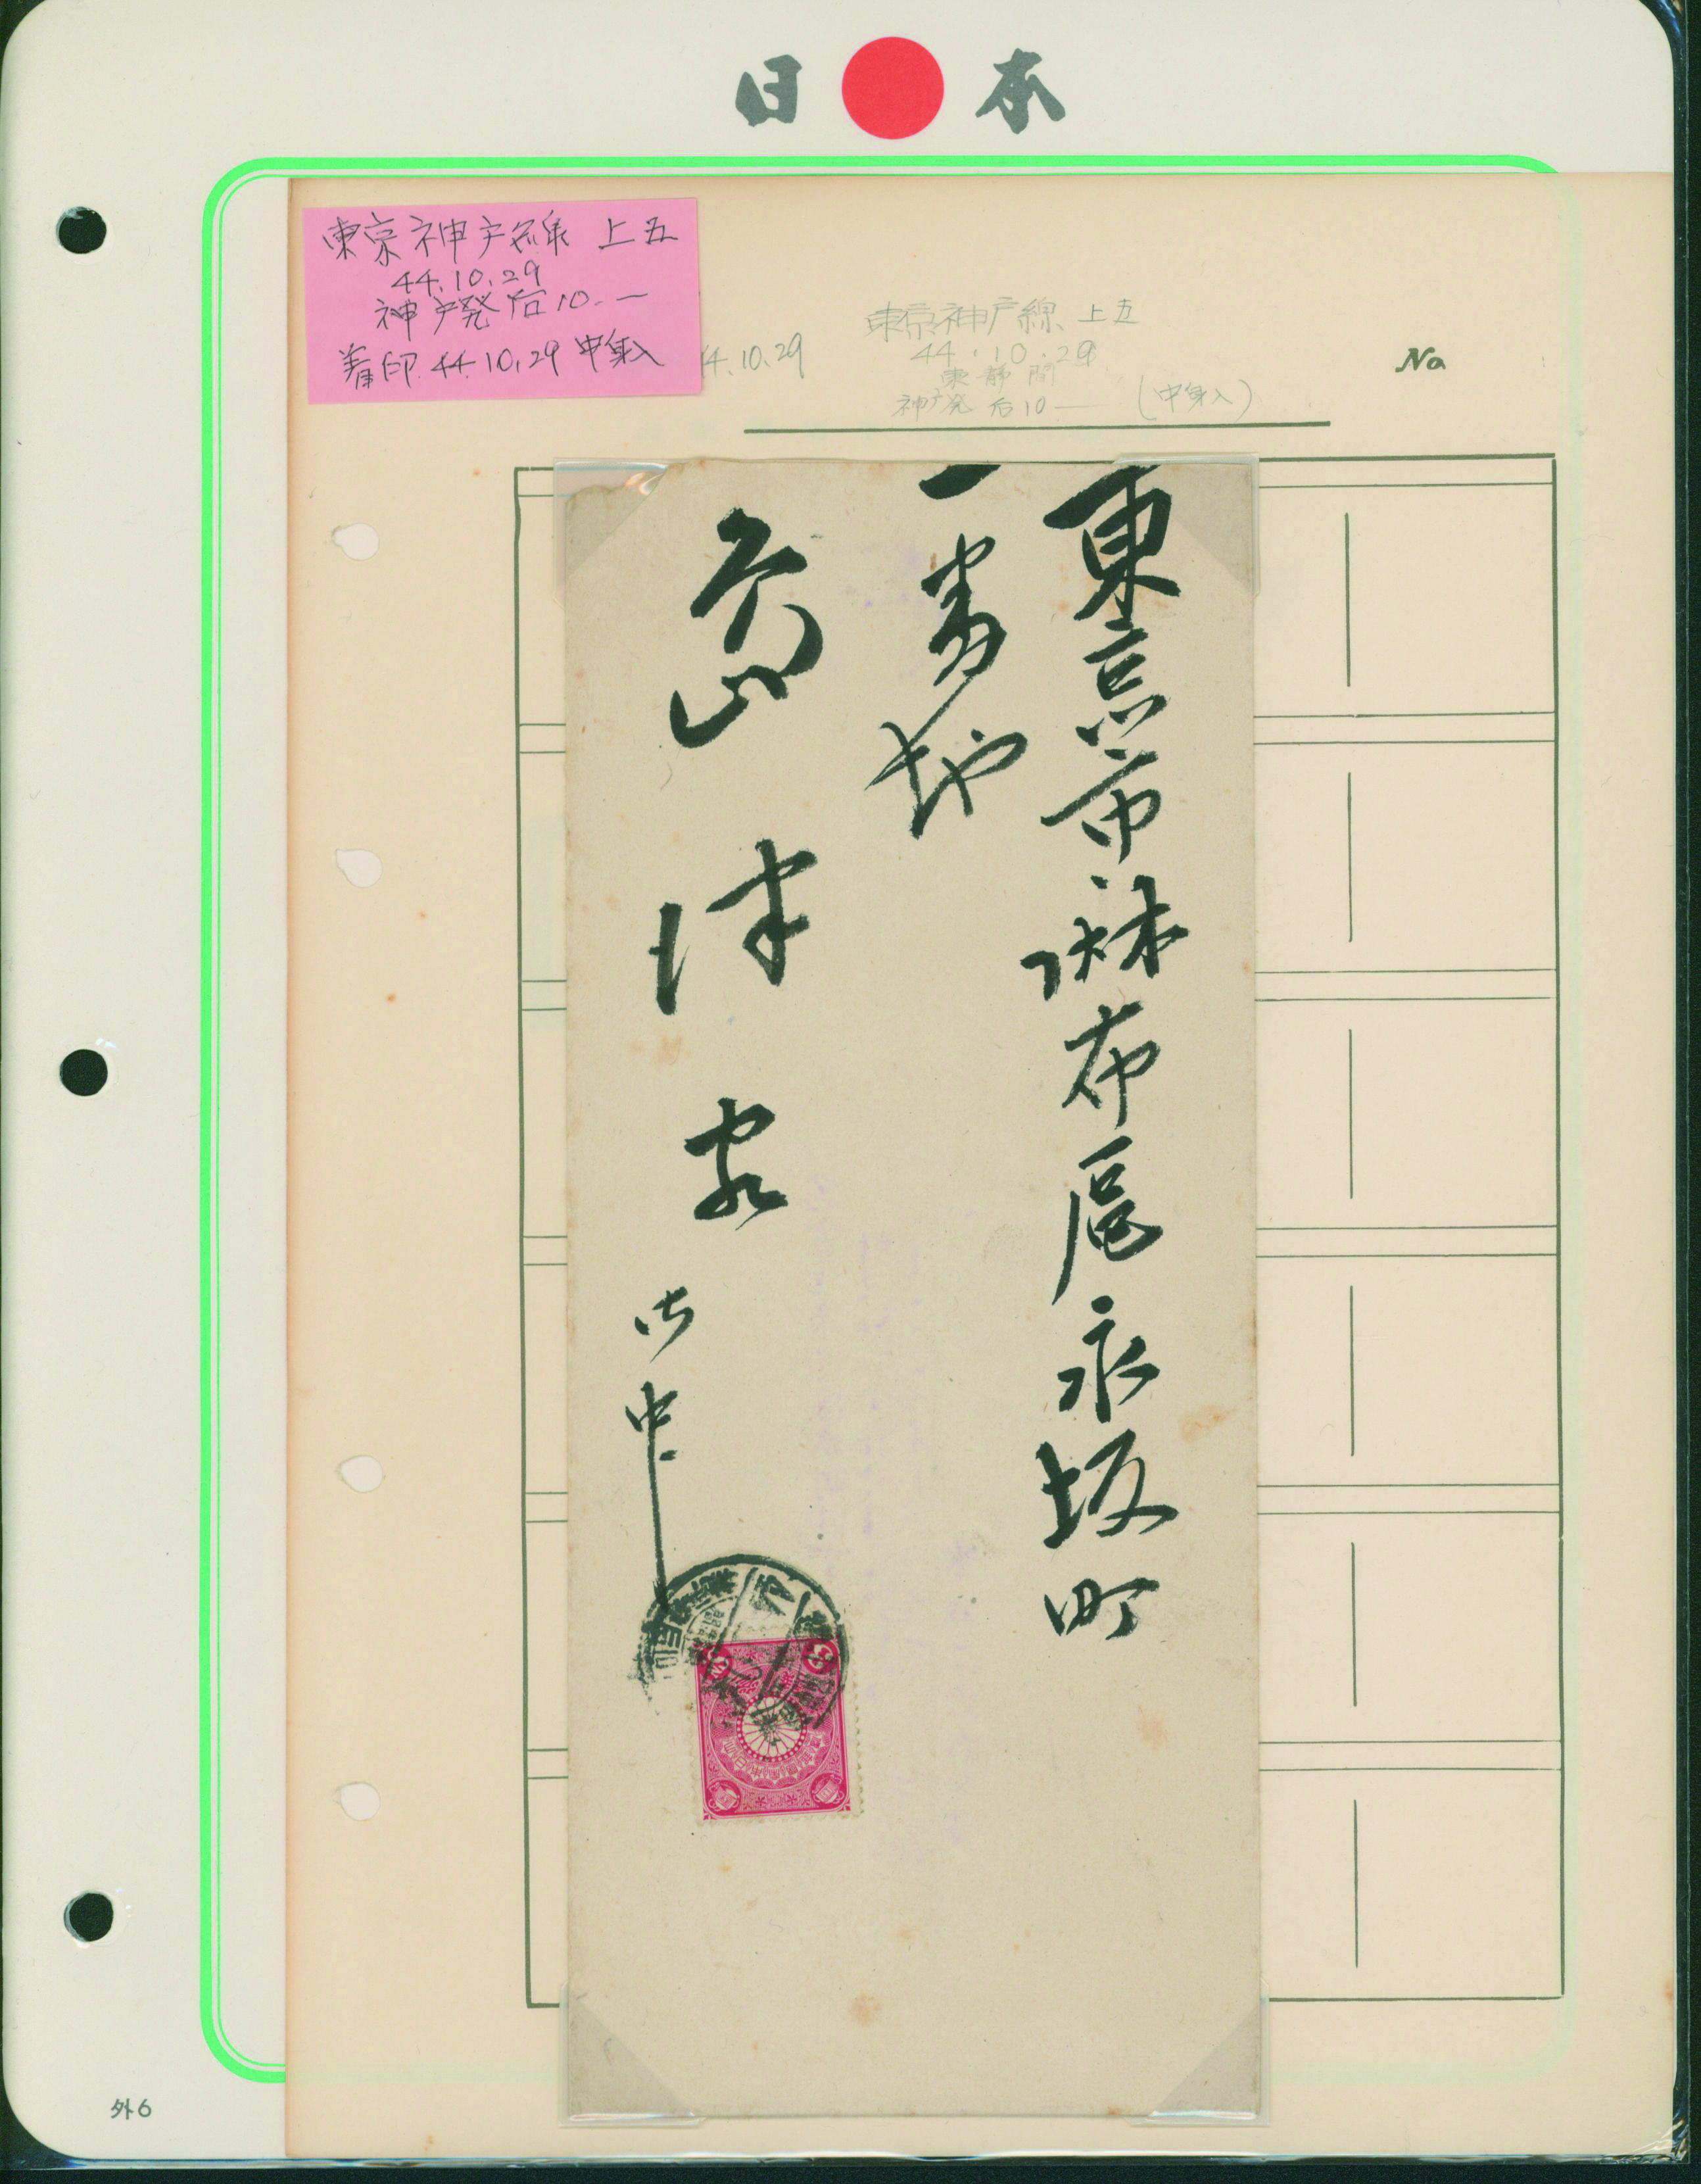 日本
東京神戸線 上五
44.10.29
神戸発后10.一
着印 44.10.29 中身入
4.10.29
東京神戸線 上五
44.10.29
東静間
神戸発 后10 — (中身入)
No
東京市麻布区永坂町
一番地
島津家
御中
3
3
外6